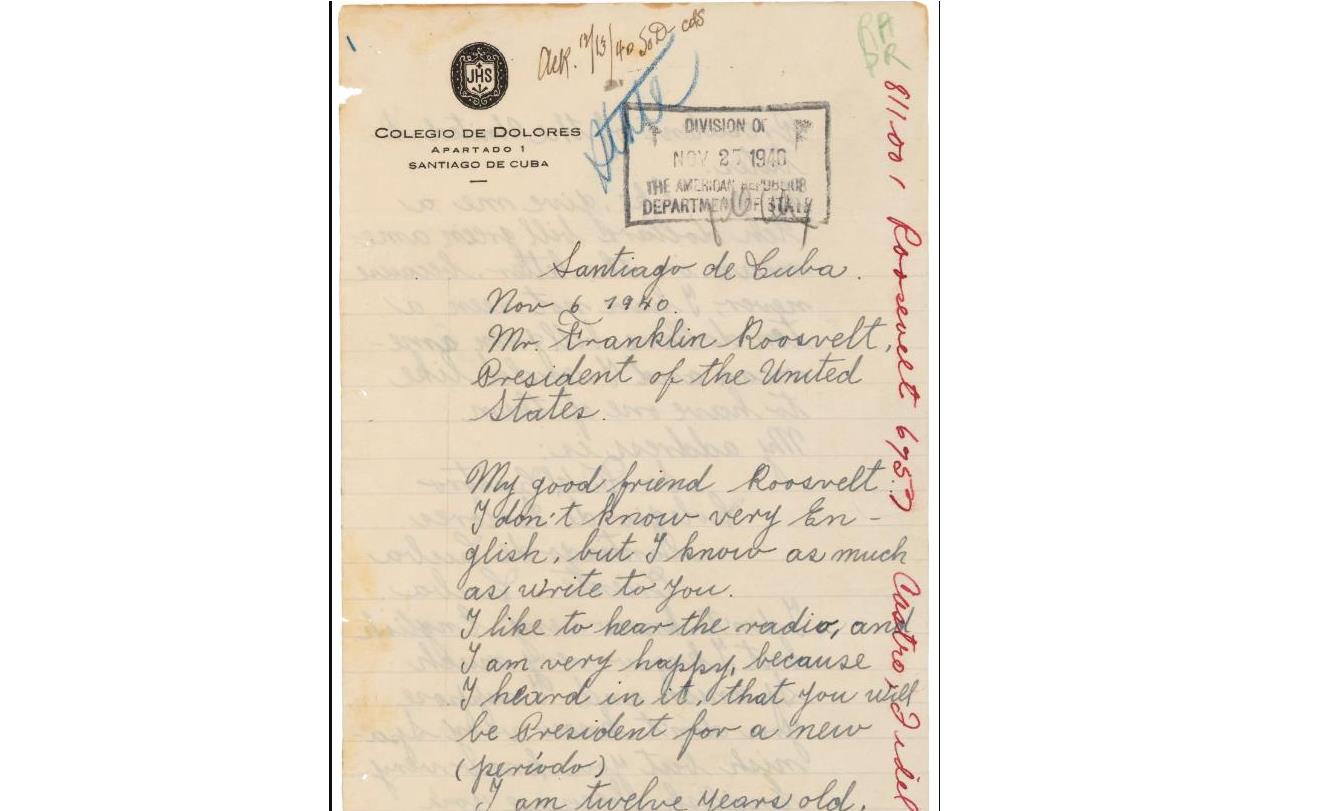 Ack. 12/13/40 SoD cds
RA
DR
JHS
COLEGIO DE DOLORES
APARTADO 1
SANTIAGO DE CUBA
State
DIVISION OF
NOV 27 1940
THE AMERICAN REPUBLICS
DEPARTMENT OF STATE
Santiago de Cuba.
Nov 6 1940.
Mr. Franklin Roosvelt,
President of the United
States.
My good friend Roosvelt
I don't know very En-
glish, but I know as much
as write to you.
I like to hear the radio, and
I am very happy, because
I heard in it, that you will
be President for a new
(período)
I am twelve years old.
811.001 Roosevelt 6957
Castro, Fidel